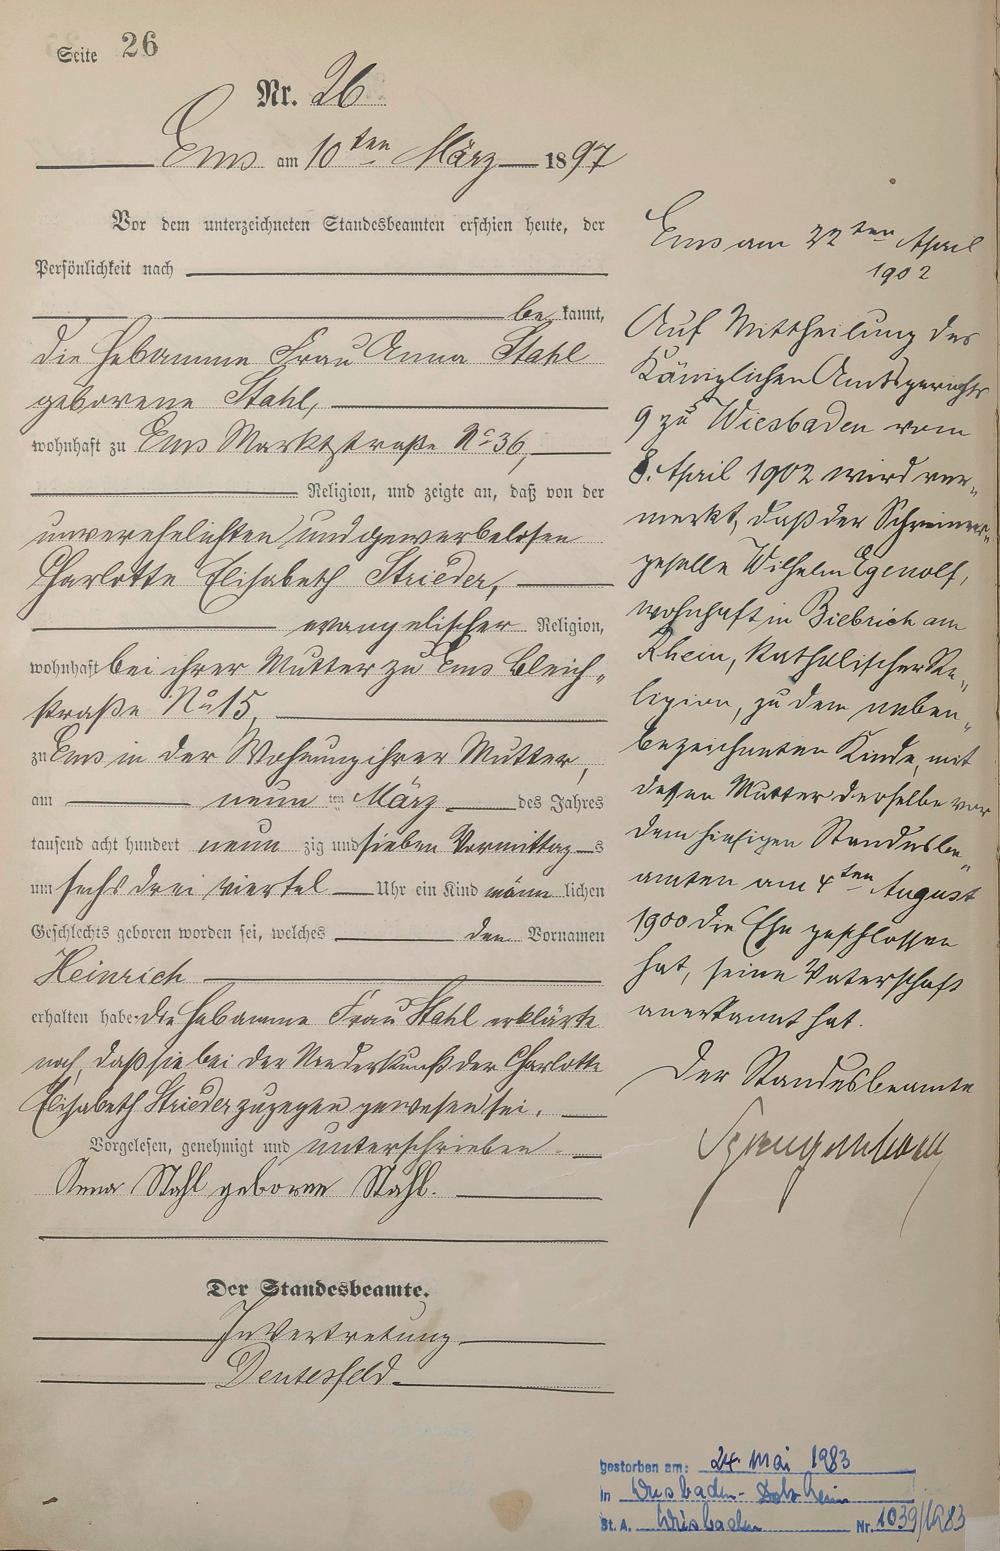 Seite 26
Nr. 26
Ems am 10ten März 1897
Vor dem unterzeichneten Standesbeamten erschien heute, der
Persönlichkeit nach
be kannt,
die Hebamme Frau Anna Stahl
geborene Stahl,
wohnhaft zu Ems Marktstraße No 36,
Religion, und zeigte an, daß von der
unverehelichten und gewerbelosen
Charlotte Elisabeth Strieder,
evangelischer Religion,
wohnhaft bei ihrer Mutter zu Ems Bleich„
straße No 15,
zu Ems in der Wohnung ihrer Mutter,
am neun ten März des Jahres
tausend acht hundert neun zig und sieben Vormittag s
um sechs drei viertel Uhr ein Kind männ lichen
Geschlechts geboren worden sei, welches den Vornamen
Heinrich
erhalten habe. die Hebamme Frau Stahl erklärte
noch, daß sie bei der Niederkunft der Charlotte
Elisabeth Strieder zugegen gewesen sei.
Vorgelesen, genehmigt und unterschrieben
Anna Stahl geborne Stahl.
Der Standesbeamte.
In Vertretung
Ems am 22ten April
1902
Auf Mittheilung des
Königlichen Amtsgerichts
9 zu Wiesbaden vom
8. April 1902 wird ver„
merkt, daß der Schreiner„
geselle Wilhelm Egenolf,
wohnhaft in Biebrich am
Rhein, katholischer Re„
ligion, zu dem neben„
bezeichneten Kinde, mit
dessen Mutter derselbe vor
dem hiesigen Standesbe„
amten am 4ten August
1900 die Ehe geschlossen
hat, seine Vaterschaft
anerkannt hat.
Der Standesbeamte
gestorben am: 24. Mai 1983
in Wiesbaden-Dotzheim
St. A. Wiesbaden Nr. 1039/1983